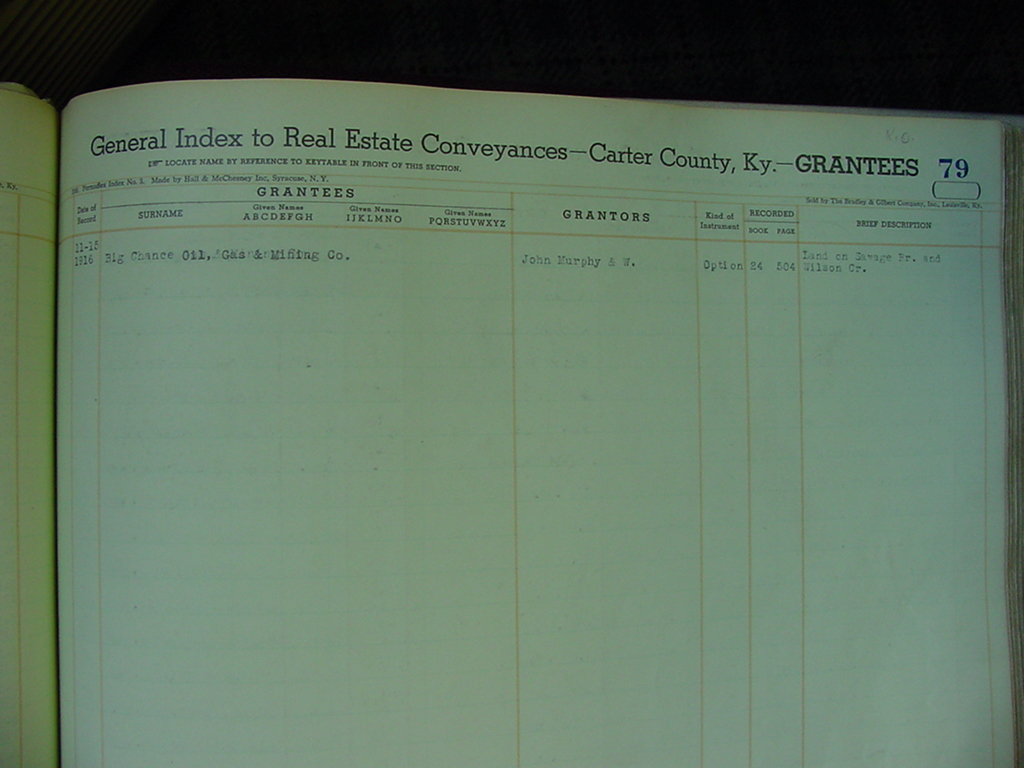 K.O.
General Index to Real Estate Conveyances—Carter County, Ky.—GRANTEES 79
LOCATE NAME BY REFERENCE TO KEYTABLE IN FRONT OF THIS SECTION.
, Ky.
Index No. 3. Made by Hall & McChesney Inc, Syracuse, N. Y.
Sold by The Bradley & Gilbert Company, Inc., Louisville, Ky.
Date of Record
GRANTEES
SURNAME
Given Names
ABCDEFGH
Given Names
IJKLMNO
Given Names
PQRSTUVWXYZ
GRANTORS
Kind of
Instrument
RECORDED
BOOK PAGE
BRIEF DESCRIPTION
11-15
1916 Big Chance Oil, Gas & Mining Co. John Murphy & W. Option 24 504 Land on Savage Br. and
Wilson Cr.